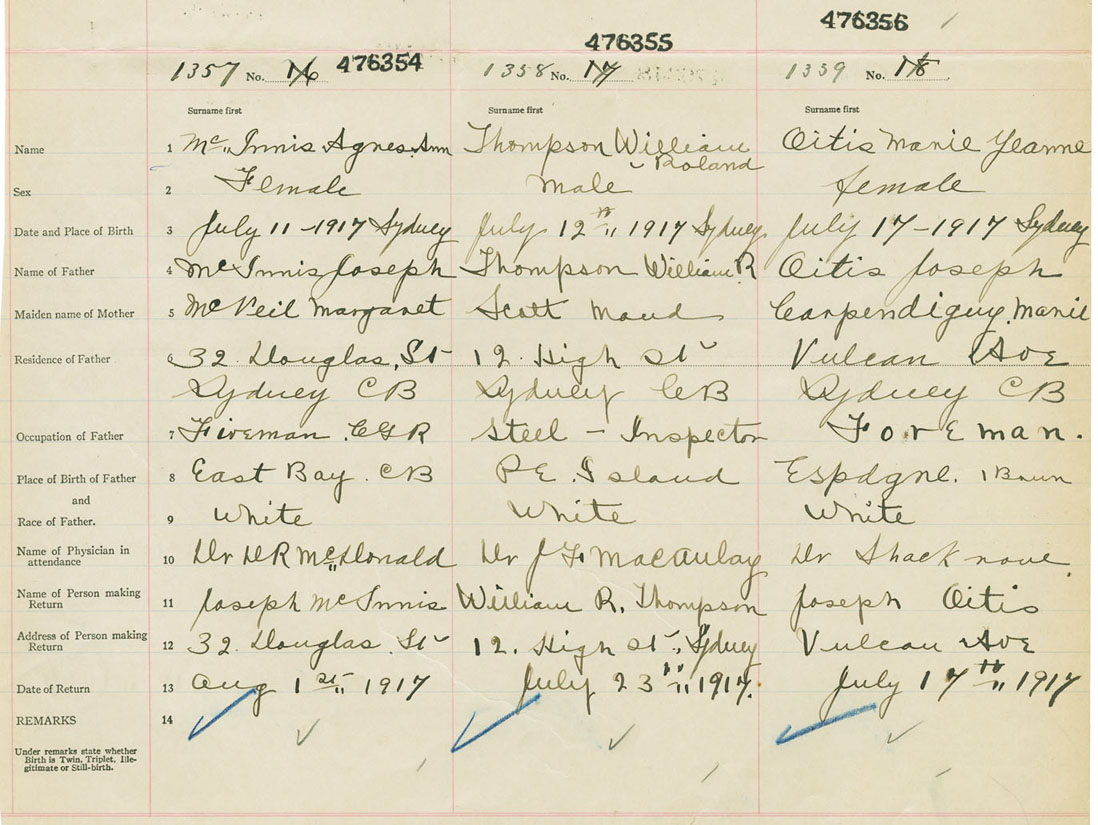 476354 476355 476356
1357 No. 16 1358 No. 17 1359 No. 18
Surname first Surname first Surname first
Name 1 Mc Innis Agnes Ann Thompson William Roland Oitis Marie Yeanne
Sex 2 Female Male female
Date and Place of Birth 3 July 11 - 1917 Sydney July 12th 1917 Sydney July 17 - 1917 Sydney
Name of Father 4 McInnis Joseph Thompson William R Oitis Joseph
Maiden name of Mother 5 McNeil Margaret Scott Maud Carpendiguy, Marie
Residence of Father 6 32 Douglas, St 12. High St Vulcan Ave
Sydney CB Sydney CB Sydney CB
Occupation of Father 7 Fireman. CGR Steel - Inspector Foreman.
Place of Birth of Father 8 East Bay. CB P.E. Island Espagne.
and
Race of Father. 9 White White White
Name of Physician in attendance 10 Dr D R McDonald Dr J F Macaulay Dr Shacknove
Name of Person making Return 11 Joseph McInnis William R. Thompson Joseph Oitis
Address of Person making Return 12 32 Douglas. St 12. High St., Sydney Vulcan Ave
Date of Return 13 Aug 1st 1917 July 23rd 1917. July 17th 1917
REMARKS 14
Under remarks state whether
Birth is Twin, Triplet, Ille-
gitimate or Still-birth.